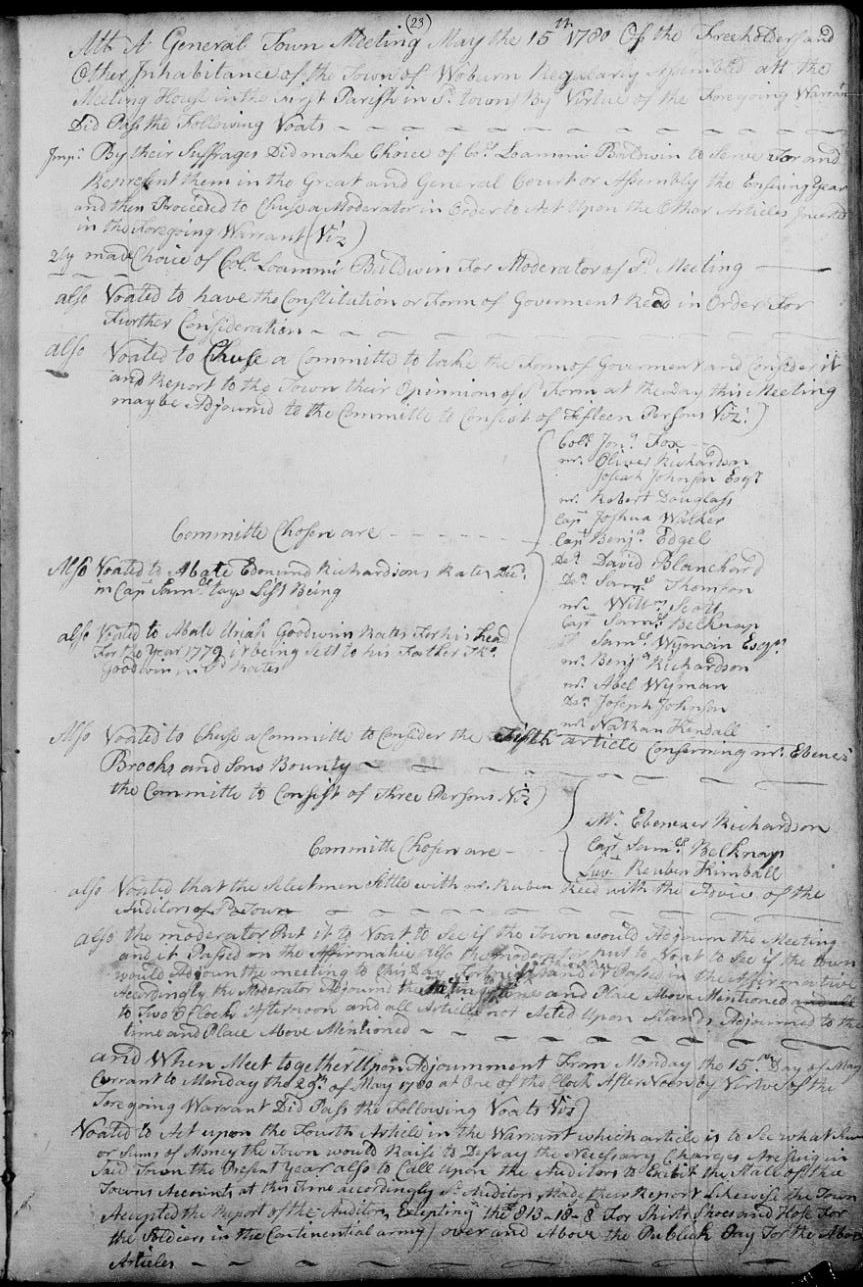 (23)
Att A General Town Meeting May the 15th 1780 Of the Freeholders and
Other Inhabitance of the Town of Woburn Regularly Assembled att the
Meeting House in the First Parish in Sd. town By Virtue of the Foregoing Warran
Did Pass the Following Voats
Impr. By their Suffrages Did make Choice of Col. Loammi Baldwin to Serve For and
Represent them in the Great and General Court or Assembly the Ensuing Year
and then Proceeded to Chuse a Moderator in Order to Act Upon the Other Articles
in the Foregoing Warrant (Viz)
2ly made Choice of Col. Loammi Baldwin For Moderator of Sd. Meeting
also Voated to have the Constitution or Form of Goverment Read in Order For
Further Consideration
also Voated to Chuse a Committe to take the Form of Goverment and Consider it
and Report to the Town their Opinnions of Sd. Form at the Day this Meeting
may be Adjournd to the Committe to Consist of Fifteen Persons Viz.)
Coll. Jona. Fox
mr. Oliver Richardson
Josiah Johnson Esqr
mr. Robert Douglass
Capt Joshua Walker
Capt Benja. Edgel
Committe Chosen are
Dea. David Blanchard
Also Voated to Abate Edmund Richardsons Rates Dec.
in Capt Samll. Lists Being
Dea. Saml. Thomson
mr. Willm. Scott
Capt Samll. Belknap
also Voated to Abate Uriah Goodwin Rates For his head
For the Year 1779 it being Sett to his Father
Goodwin in Sd. Rates
Samll. Wyman Esqr.
mr. Benja. Richardson
mr. Abel Wyman
Dea. Joseph Johnson
mr. Nathan Kendall
Also Voated to Chuse a Committe to Consider the Fifth article Conserning mr. Ebenezr
Brooks and Sons Bounty
the Committe to Consist of Three Persons Viz)
Mr. Ebenezer Richardson
Committe Chosen are
Capt Samll. Belknap
Lut. Reuben Kimball
also Voated that the Selectmen Settle with mr. Reuben Reed with the Advice of the
Auditors of Sd Town
also the moderator Put it to Voat to See if the Town would Adjourn the Meeting
and it Passed on the Affirmative also the moderator put to Voat to See if the town
would Adjourn the meeting to this Day Fortnight and it Passed in the Affirmative
Accordingly the Moderator Adjournd the time and Place Above Mentioned
to Two O Clock Afternoon and all Articles not Acted Upon Stands Adjourned to the
time and Place Above Mentioned
and When Meet together Upon Adjournment From Monday the 15th Day of May
Currant to Monday the 29th of May 1780 at One of the Clock After Noon by Virtue of the
Foregoing Warrant Did Pass the Following Voats Viz)
Voated to Act upon the Fourth Article in the Warrant which article is to See what Sum
or Sums of Money the Town would Raise to Defray the Necessary Charges Areseing in
Said Town the Present Year also to Call Upon the Auditors to Exibit the State of the
Towns Accounts at this Time accordingly Sd. Auditors Made their Report Likewise the Town
Accepted the Report of the Auditors Exepting the 813-18-8 For Shirts Shoes and Hose For
the Soldiers in the Continential army) over and Above the Publick Pay For the Above
Articles